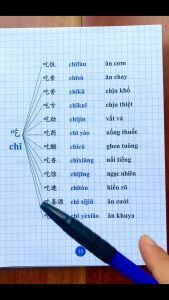 吃
chī
吃饭 chīfàn ăn cơm
吃素 chīsù ăn chay
吃苦 chīkǔ chịu khổ
吃亏 chīkuī chịu thiệt
吃劲 chījìn vất vả
吃药 chī yào uống thuốc
吃醋 chīcù ghen tuông
吃香 chīxiāng nổi tiếng
吃惊 chījīng ngạc nhiên
吃透 chītòu hiểu rõ
吃喜酒 chī xǐjiǔ ăn cưới
chī yèxiāo ăn khuya